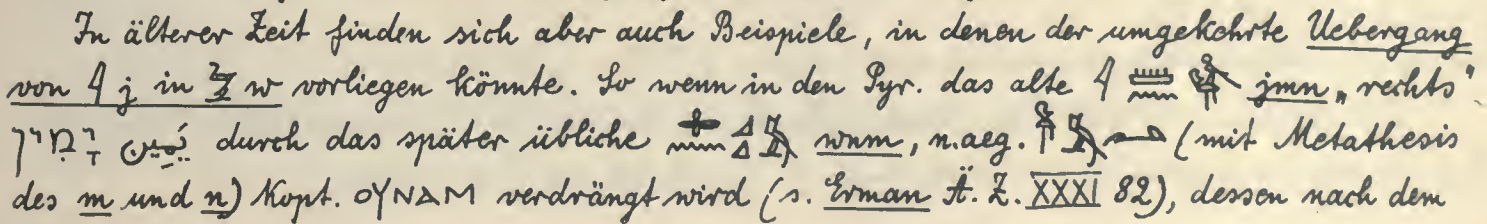 In älterer Zeit finden sich aber auch Beispiele, in denen der umgekehrte Uebergang
von 𓇋 j in 𓅱 w vorliegen könnte. So wenn in den Pyr. das alte 𓇋 𓏠 𓈖 jmn „rechts“
יָמִין يَمين durch das später übliche wnm, n.aeg. (mit Metathesis
des m und n) kopt. ⲟⲩⲛⲁⲙ verdrängt wird (s. Erman Ä. Z. XXXI 82), dessen nach dem